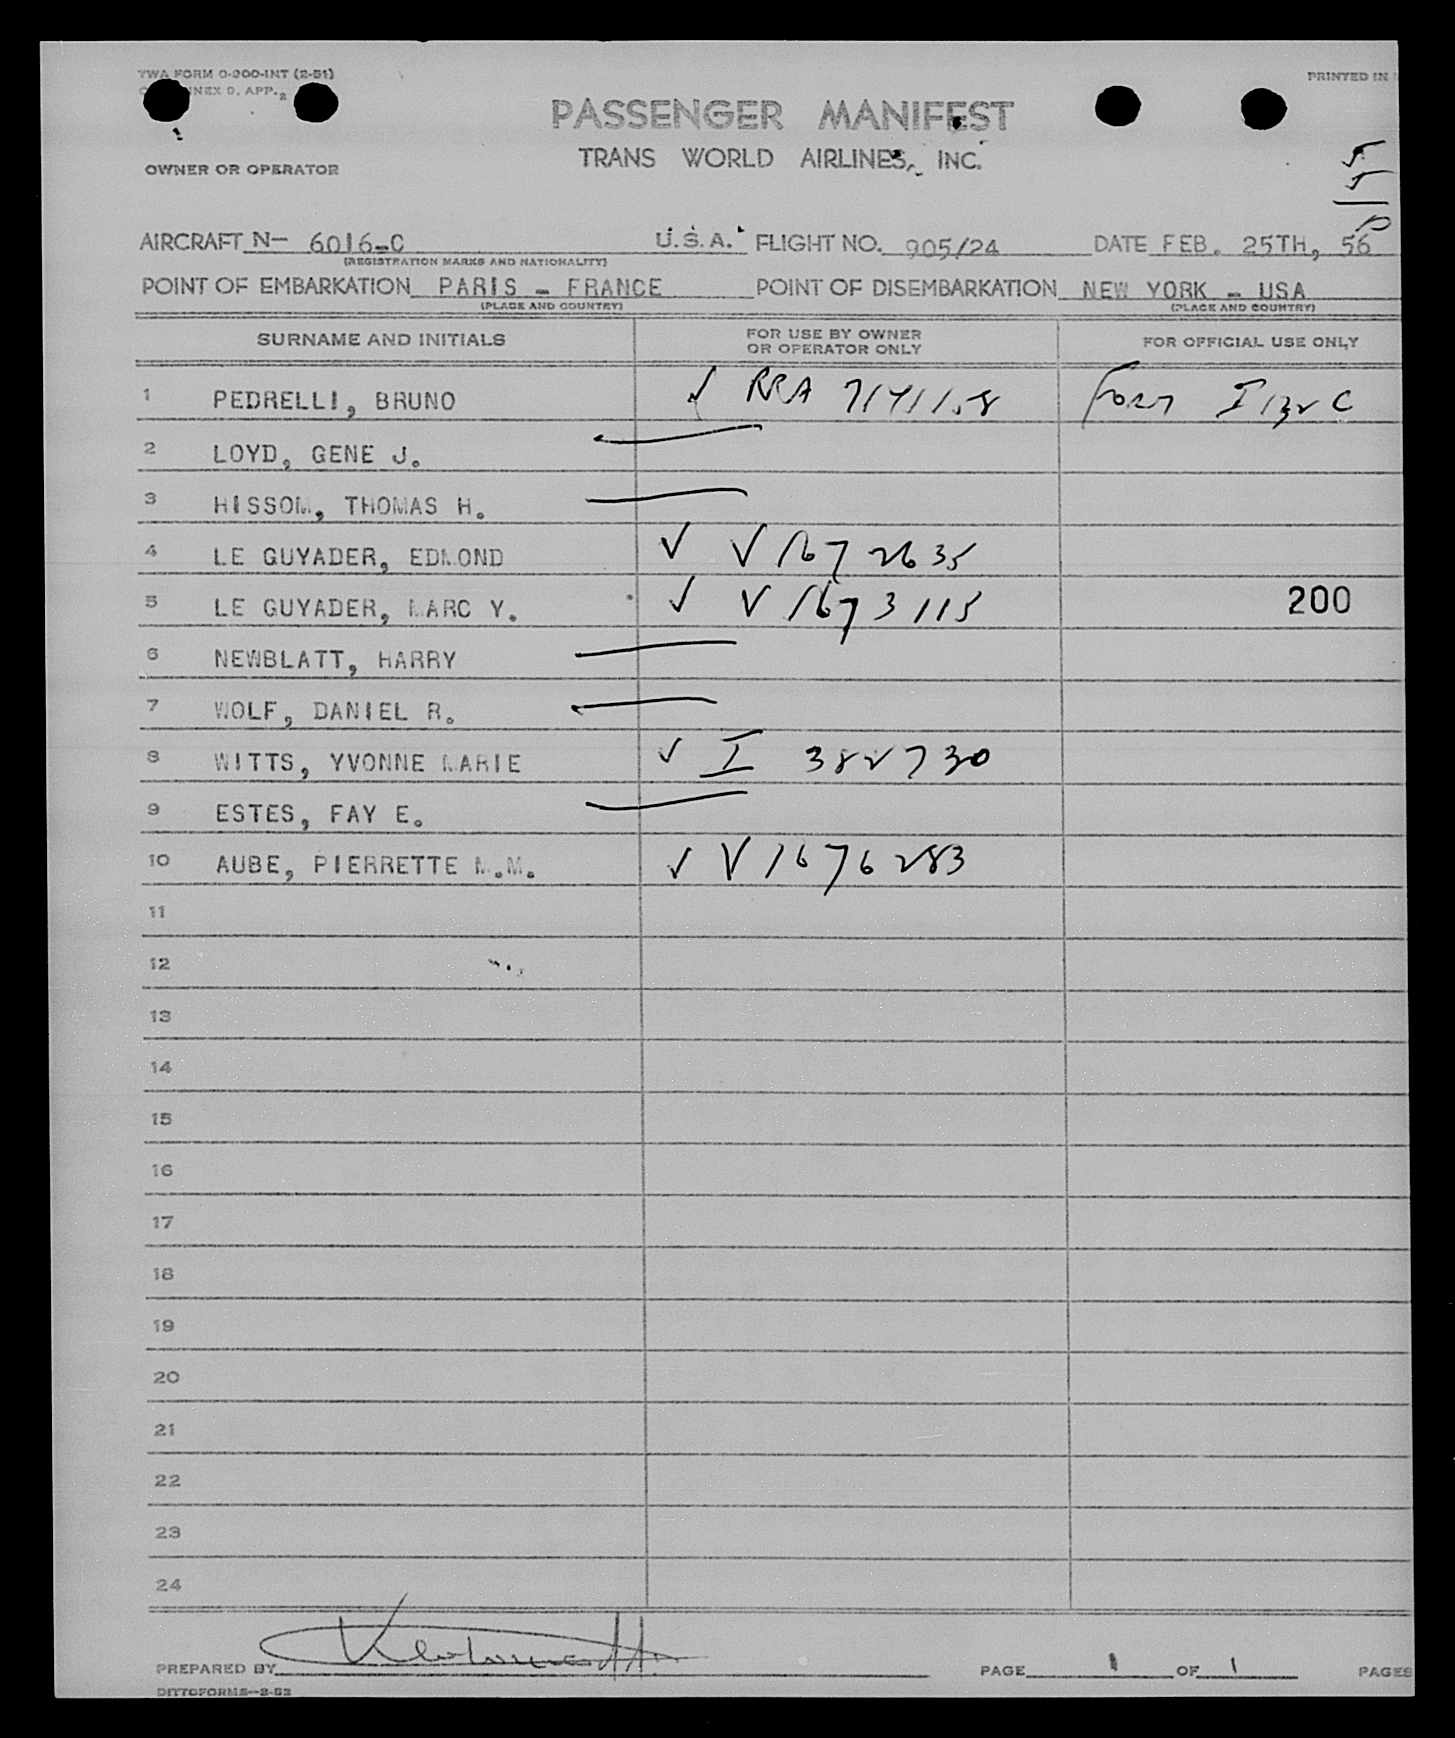 TWA FORM O-200-INT (2-51)
ANNEX D. APP. 2
PRINTED IN
PASSENGER MANIFEST
TRANS WORLD AIRLINES, INC.
OWNER OR OPERATOR
5
5
10
AIRCRAFT N- 6016-C U.S.A. FLIGHT NO. 905/24 DATE FEB. 25TH, 56
(REGISTRATION MARKS AND NATIONALITY)
POINT OF EMBARKATION PARIS - FRANCE POINT OF DISEMBARKATION NEW YORK - USA
(PLACE AND COUNTRY) (PLACE AND COUNTRY)
SURNAME AND INITIALS FOR USE BY OWNER OR OPERATOR ONLY FOR OFFICIAL USE ONLY
1 PEDRELLI, BRUNO ✓ RRA 7141158 Form I 132 C
2 LOYD, GENE J.
3 HISSOM, THOMAS H.
4 LE GUYADER, EDMOND ✓ V 1672635
5 LE GUYADER, MARC Y. ✓ V 1673115 200
6 NEWBLATT, HARRY
7 WOLF, DANIEL R.
8 WITTS, YVONNE MARIE ✓ I 382730
9 ESTES, FAY E.
10 AUBE, PIERRETTE M.M. ✓ V 1676283
11
12
13
14
15
16
17
18
19
20
21
22
23
24
PREPARED BY PAGE 1 OF 1 PAGES
DITTOFORMS-2-52